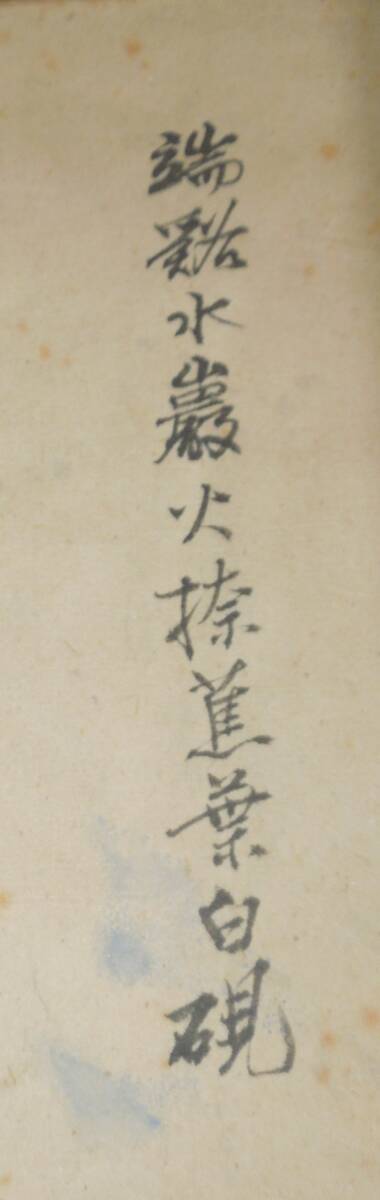 端谿水巖火捺蕉葉白硯